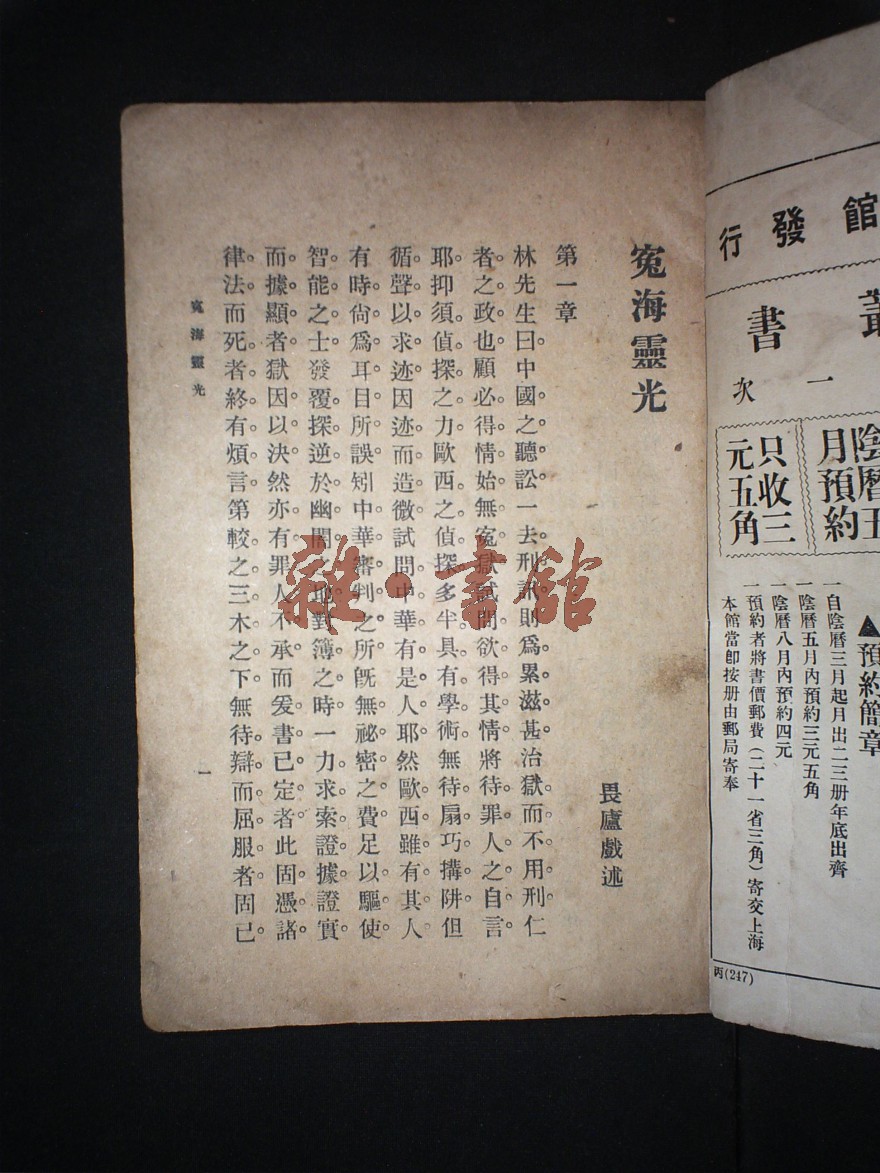 館發行
叢書
一次
月預約
只收三元五角
▲預約簡章
一自陰曆三月起月出二三册年底出齊
一陰曆五月內預約三元五角
一陰曆八月內預約四元
一預約者將書價郵費（二十一省三角）寄交上海
本館當卽按册由郵局寄奉
丙(247)
寃海靈光
畏廬戲述
第一章
林先生曰。中國之聽訟。一去刑訊。則爲累滋甚。治獄而不用刑。仁
者之政也。顧必得情。始無寃獄。試問欲得其情。將待罪人之自言
耶。抑須偵探之力。歐西之偵探。多半具有學術。無待扇巧搆阱。但
循聲以求迹。因迹而造微。試問中華有是人耶。然歐西雖有其人。
有時尙爲耳目所誤。矧中華審判之所。旣無祕密之費。足以驅使
智能之士。發覆探逆於幽闇之地。對簿之時。一力求索證據。證實
而據顯者。獄因以決。然亦有罪人不承。而爰書已定者。此固憑諸
律法。而死者終有煩言。第較之三木之下。無待辯而屈服者。固已
寃海靈光
一
雜·書館